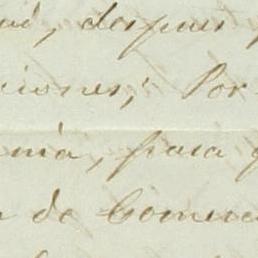 despues
iones; Por
nia, para
de Comerc